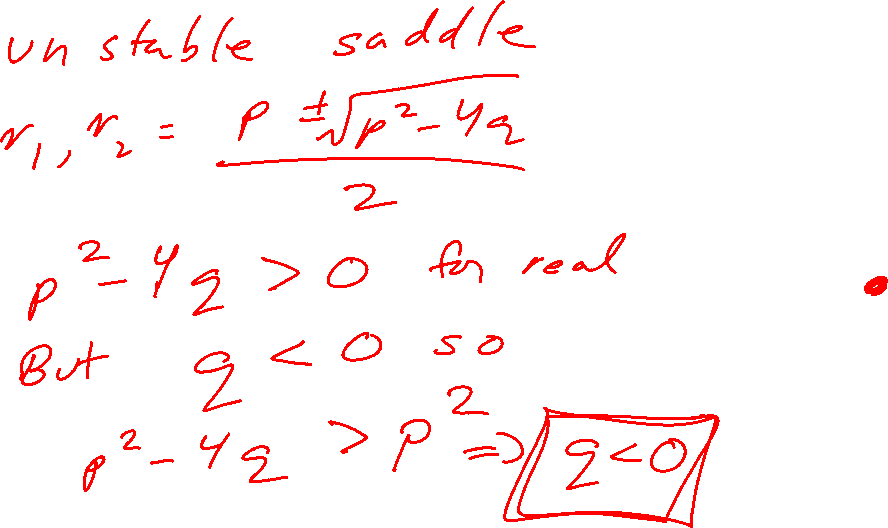 unstable saddle
r₁, r₂ = (p ± √(p² - 4q)) / 2
p² - 4q > 0 for real
But q < 0 so
p² - 4q > p² ⇒ q < 0